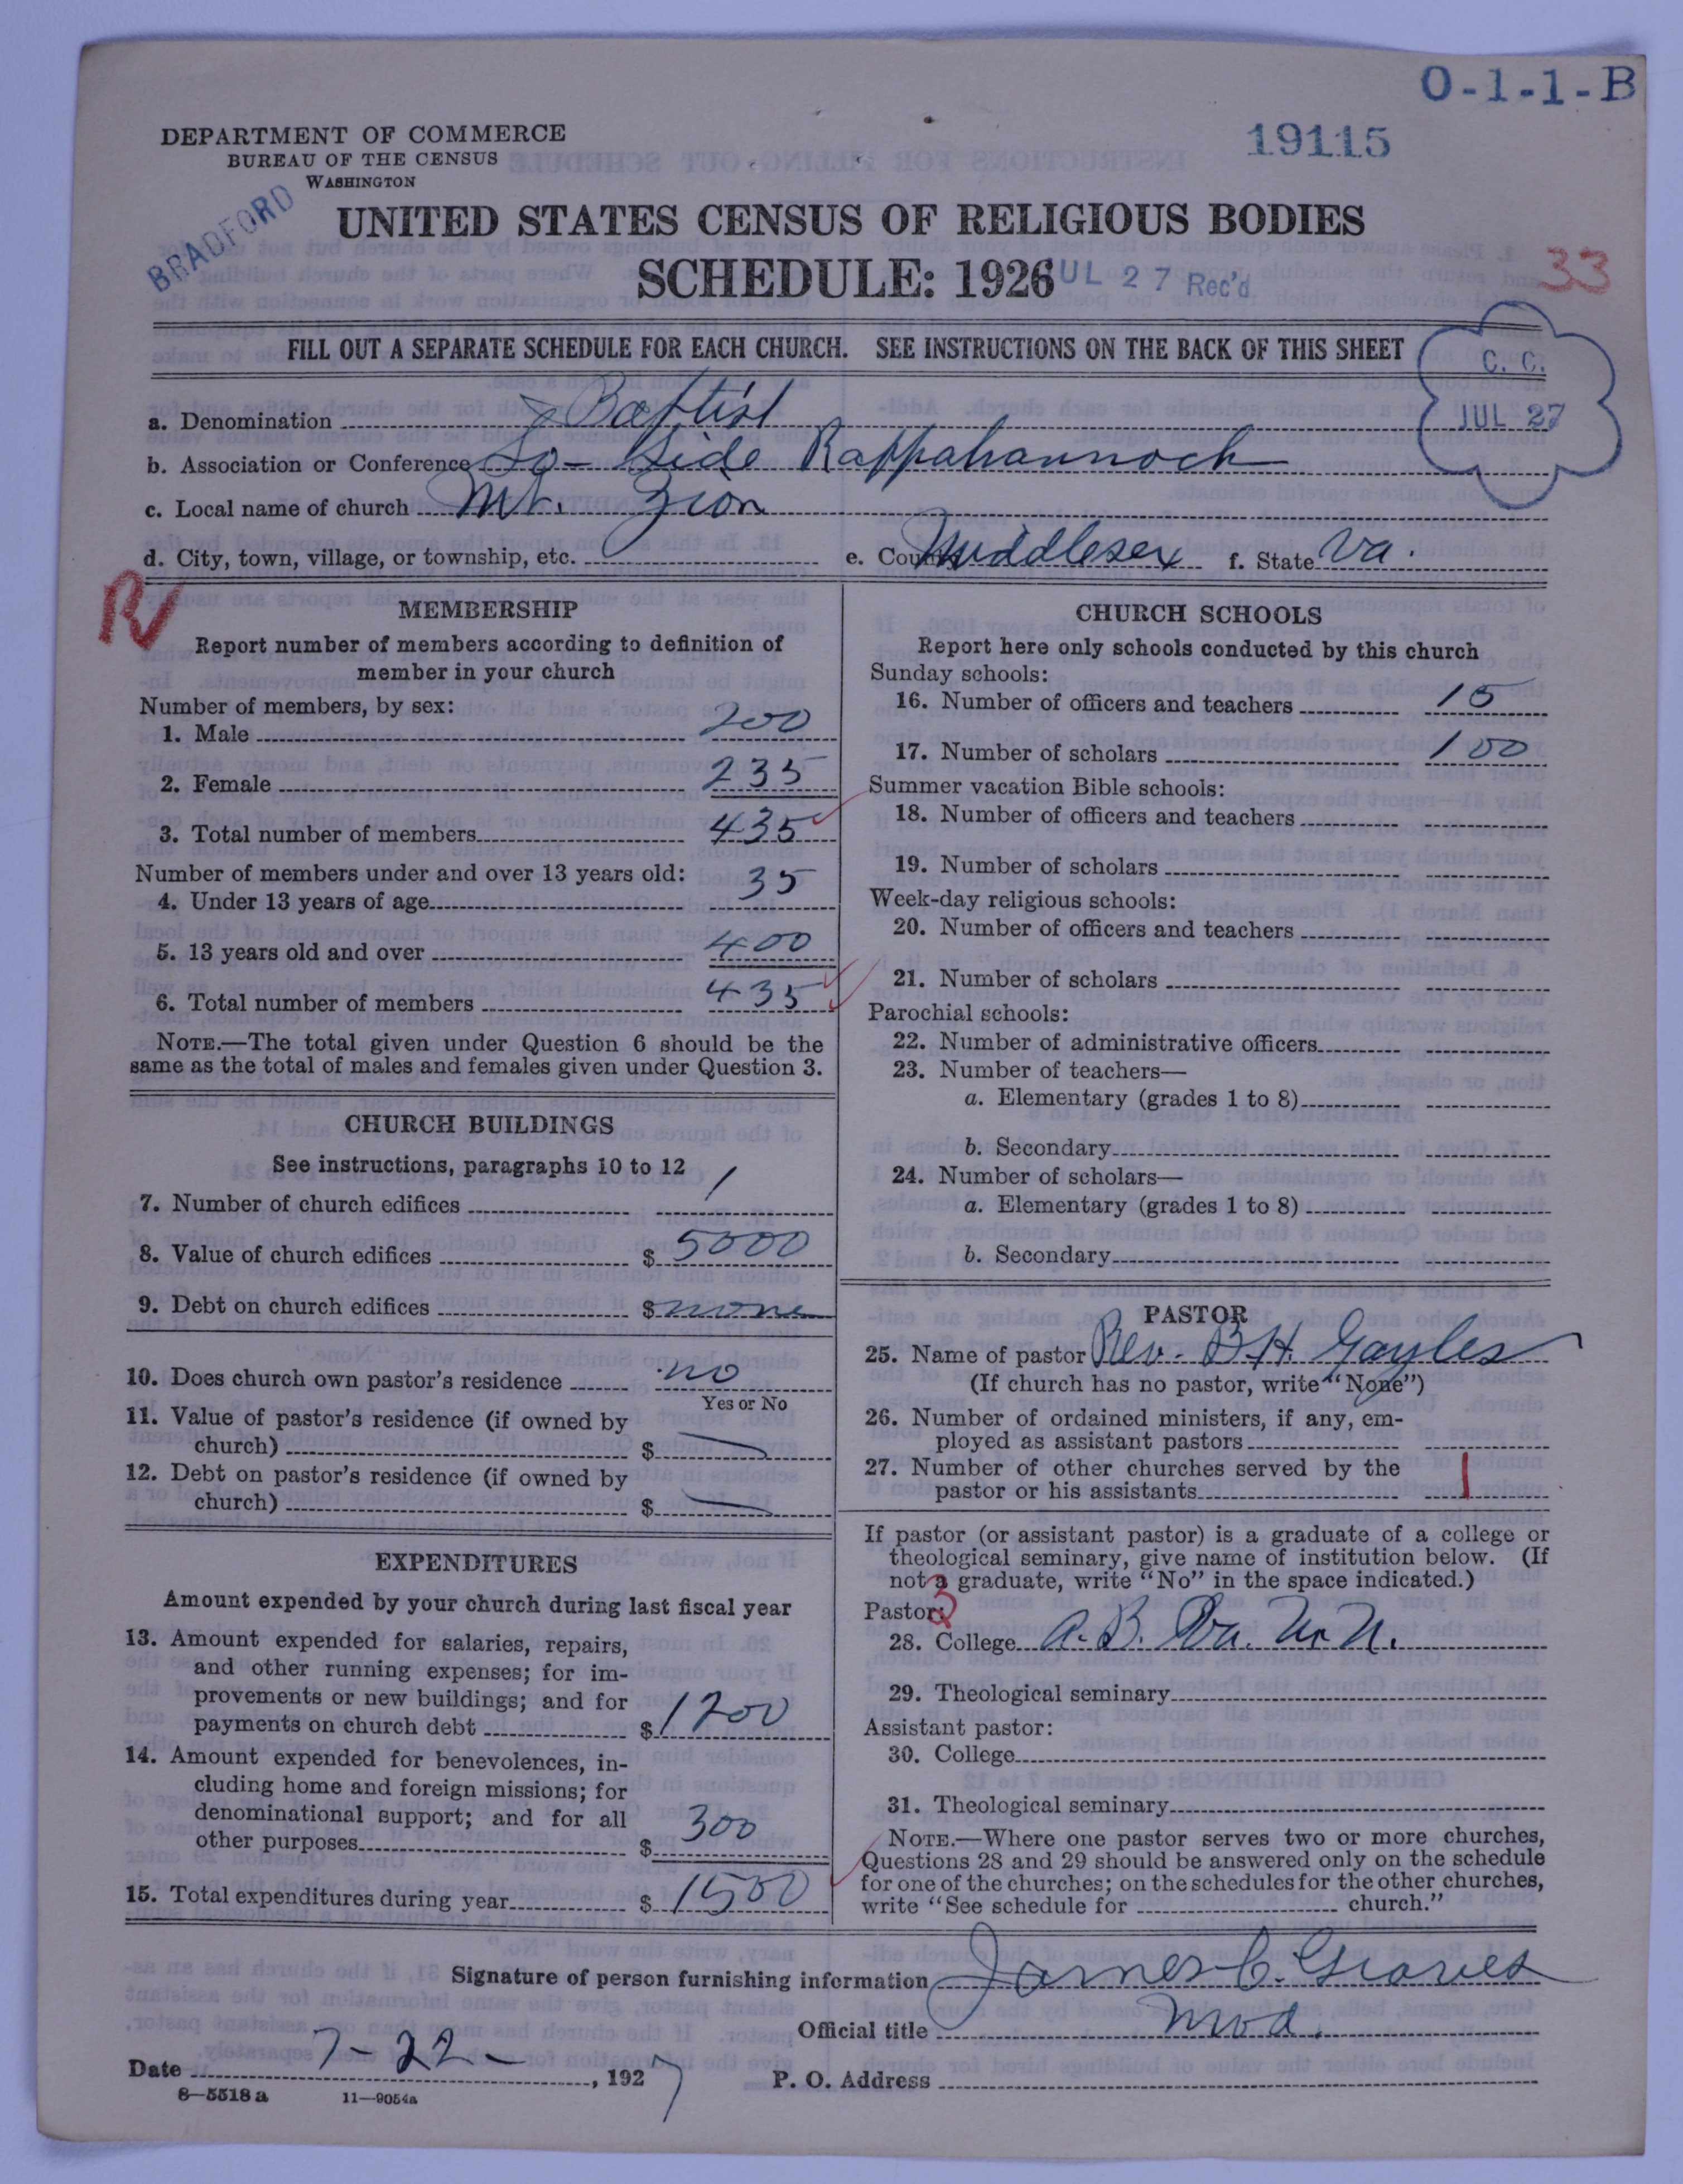 O-1-1-B
19115
DEPARTMENT OF COMMERCE
BUREAU OF THE CENSUS
WASHINGTON
BRADFORD
UNITED STATES CENSUS OF RELIGIOUS BODIES
SCHEDULE: 1926
UL 27 Rec'd
33
FILL OUT A SEPARATE SCHEDULE FOR EACH CHURCH. SEE INSTRUCTIONS ON THE BACK OF THIS SHEET
C. C.
JUL 27
a. Denomination Baptist
b. Association or Conference So- Side Rappahannock
c. Local name of church Mt. Zion
d. City, town, village, or township, etc. e. County Middlesex f. State Va.
R
MEMBERSHIP
Report number of members according to definition of
member in your church
Number of members, by sex:
1. Male 200
2. Female 235
3. Total number of members 435
Number of members under and over 13 years old:
4. Under 13 years of age 35
5. 13 years old and over 400
6. Total number of members 435
NOTE.—The total given under Question 6 should be the
same as the total of males and females given under Question 3.
CHURCH BUILDINGS
See instructions, paragraphs 10 to 12
7. Number of church edifices 1
8. Value of church edifices $ 5000
9. Debt on church edifices $ none
10. Does church own pastor's residence no
Yes or No
11. Value of pastor's residence (if owned by
church) $
12. Debt on pastor's residence (if owned by
church) $
EXPENDITURES
Amount expended by your church during last fiscal year
13. Amount expended for salaries, repairs,
and other running expenses; for im-
provements or new buildings; and for
payments on church debt $ 1200
14. Amount expended for benevolences, in-
cluding home and foreign missions; for
denominational support; and for all
other purposes $ 300
15. Total expenditures during year $ 1500
CHURCH SCHOOLS
Report here only schools conducted by this church
Sunday schools:
16. Number of officers and teachers 15
17. Number of scholars 100
Summer vacation Bible schools:
18. Number of officers and teachers
19. Number of scholars
Week-day religious schools:
20. Number of officers and teachers
21. Number of scholars
Parochial schools:
22. Number of administrative officers
23. Number of teachers—
a. Elementary (grades 1 to 8)
b. Secondary
24. Number of scholars—
a. Elementary (grades 1 to 8)
b. Secondary
PASTOR
25. Name of pastor Rev. B.H. Gayles
(If church has no pastor, write "None")
26. Number of ordained ministers, if any, em-
ployed as assistant pastors
27. Number of other churches served by the
pastor or his assistants 1
If pastor (or assistant pastor) is a graduate of a college or
theological seminary, give name of institution below. (If
not a graduate, write "No" in the space indicated.)
Pastor: 3
28. College A.B. Va. U. N.
29. Theological seminary
Assistant pastor:
30. College
31. Theological seminary
NOTE.—Where one pastor serves two or more churches,
Questions 28 and 29 should be answered only on the schedule
for one of the churches; on the schedules for the other churches,
write "See schedule for church."
Signature of person furnishing information James C. Graves
Official title Mod.
Date 7-22-, 1927 P. O. Address
8-5518 a 11-9054a